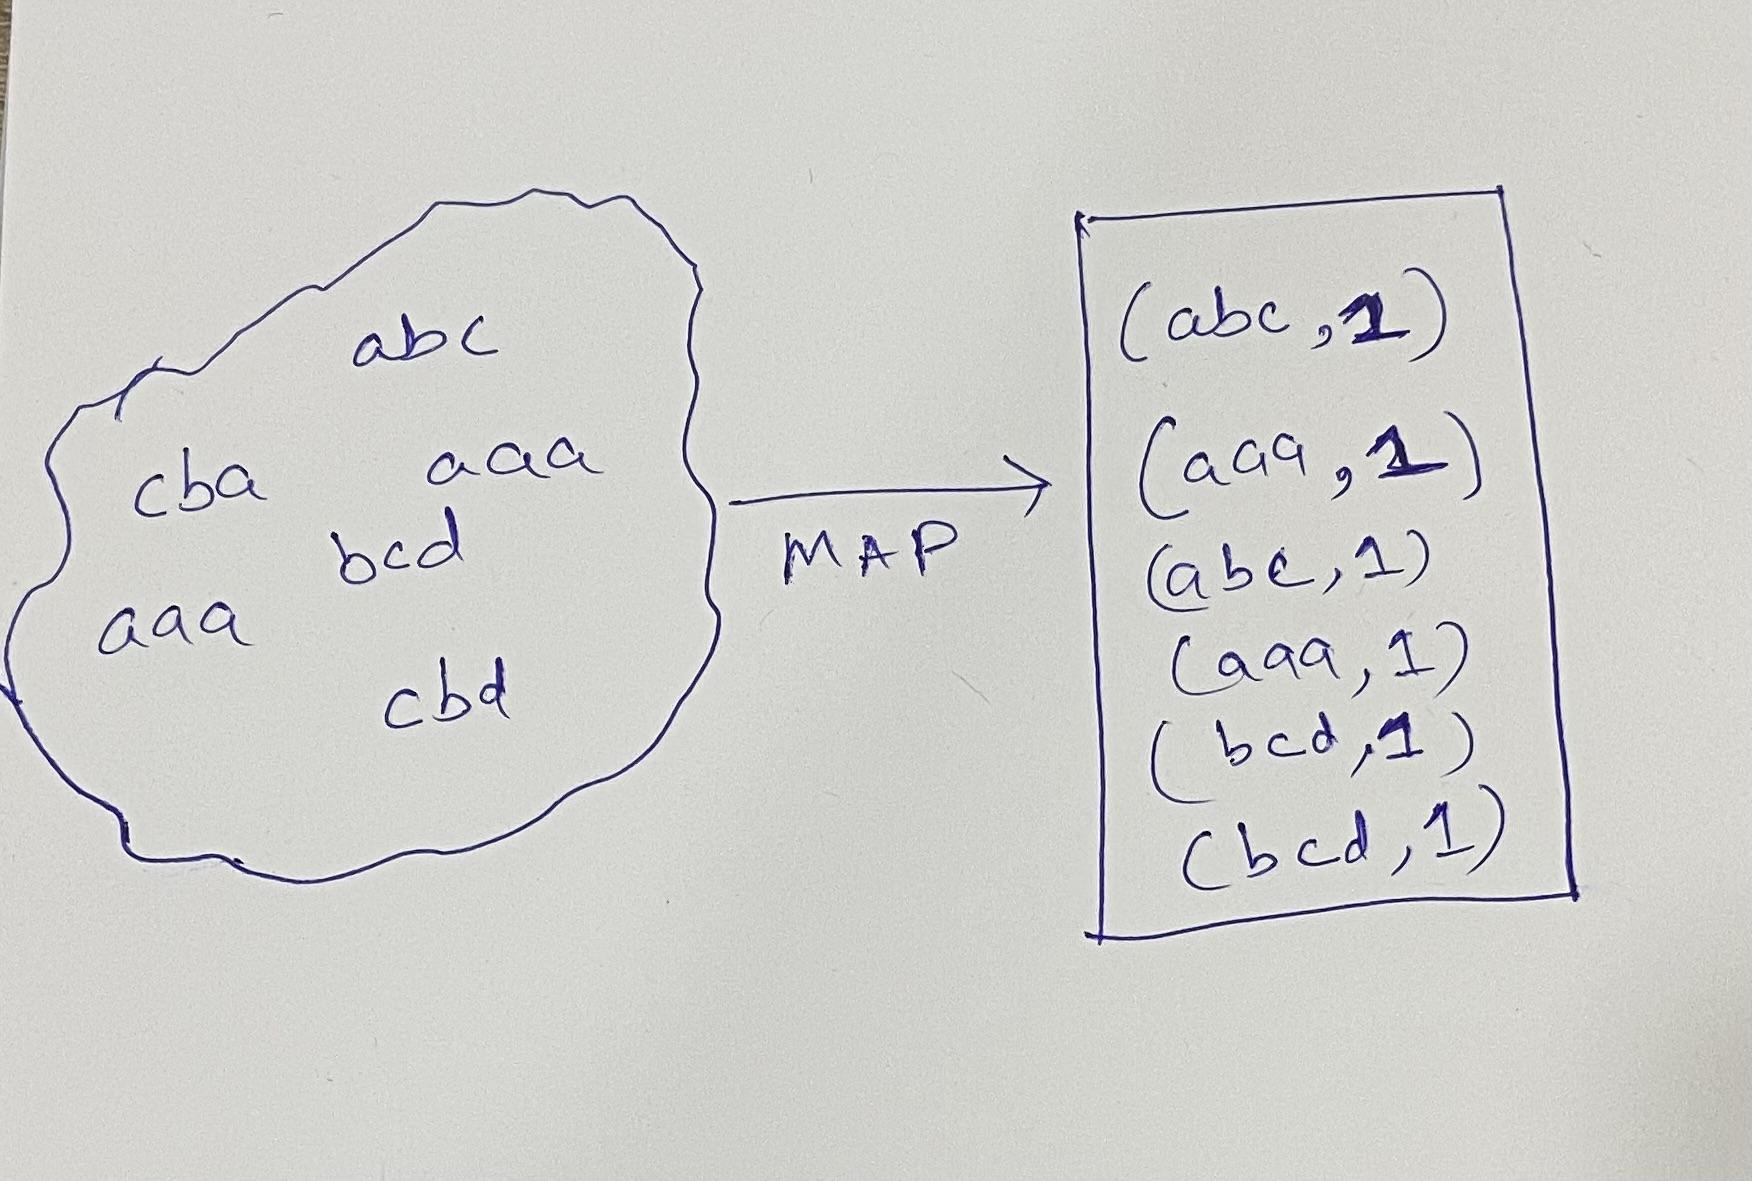 abc
cba
aaa
bcd
aaa
cbd
MAP
(abc,1)
(aaa,1)
(abc,1)
(aaa,1)
(bcd,1)
(bcd,1)